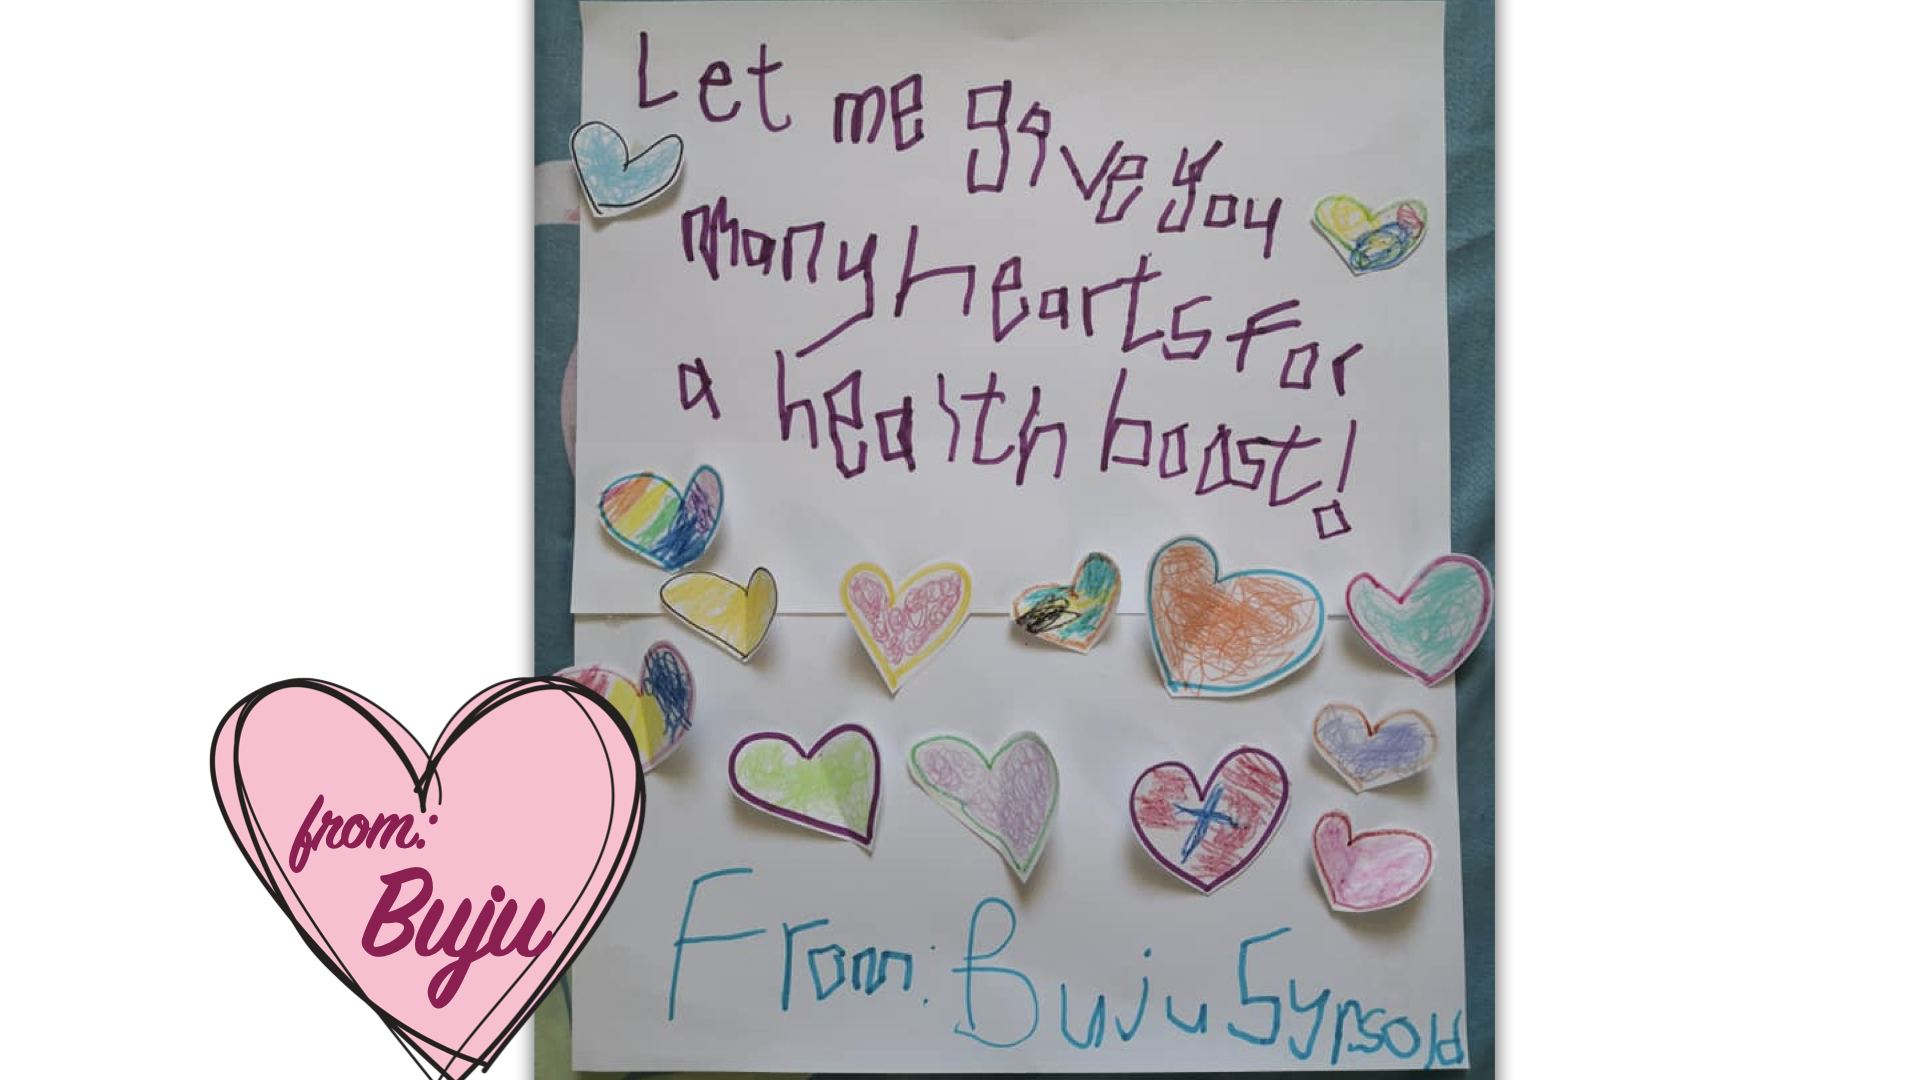 Let me give you
many hearts for
a health boost!
From: Buju 5yrsold
from:
Buju